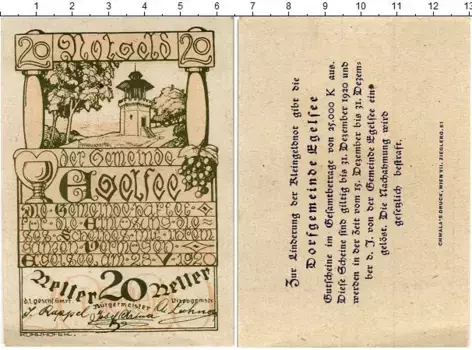 1 2 3 4 5 6 7 8 9 10 11 12 13
20 Notgeld 20
der Gemeinde
Egelsee
Die Gemeinde haftet
Egelsee, am 28. V. 1920
Heller 20 Heller
d. 1. gesch. Gmrt. Bürgermeister Vizebürgermst.
Zur Linderung der Kleingeldnot gibt die
Dorfgemeinde Egelsee
Gutscheine im Gesamtbetrage von 25.000 K aus.
Diese Scheine sind giltig bis 31. Dezember 1920 und
werden in der Zeit vom 15. Dezember bis 31. Dezem-
ber d. J. von der Gemeinde Egelsee ein-
gelöst. Die Nachahmung wird
gesetzlich bestraft.
CHWALA'S DRUCK, WIEN VII. ZIEGLERG. 61